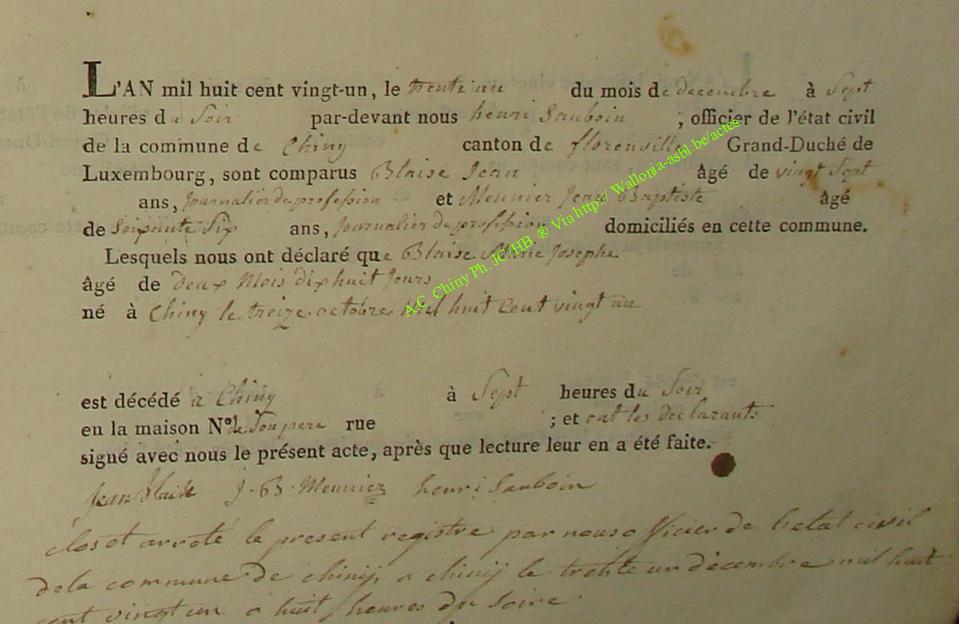 L'AN mil huit cent vingt-un, le trente un du mois de decembre à Sept
heures du Soir par-devant nous henri Sauboin ; officier de l'état civil
de la commune de Chiny canton de florenville Grand-Duché de
Luxembourg, sont comparus Blaise Jean âgé de vingt Sept
ans, Journalier de profession et Meunier Jean Baptiste âgé
de Soixante Six ans, Journalier de profession domiciliés en cette commune.
Lesquels nous ont déclaré que Blaise Josephe
âgé de deux Mois dix huit Jours
né à Chiny le treize octobre Mil huit Cent vingt un
est décédé a Chiny à Sept heures du Soir
en la maison No. de Son pere rue ; et ont les declarants
signé avec nous le présent acte, après que lecture leur en a été faite.
Jean Blaise J. B. Meunier henri Sauboin
clos et arreté le present registre par nous officier de l'etat civil
de la commune de chinij, a chinij le trente un décembre mil huit
cent vingt un a huit heures du soire.
A.C. Chiny Ph. JC/HB ® Via http://Wallonia-asbl.be/actes